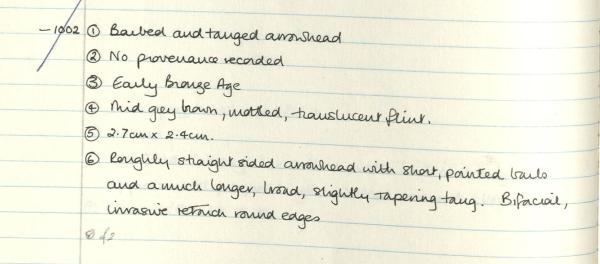 - 1002 ① Barbed and tanged arrowhead
② No provenance recorded
③ Early Bronze Age
④ Mid grey brown, mottled, translucent flint.
⑤ 2.7cm x 2.4cm.
⑥ Roughly straight sided arrowhead with short, pointed barbs
and a much longer, broad, slightly tapering tang. Bifacial,
invasive retouch round edges